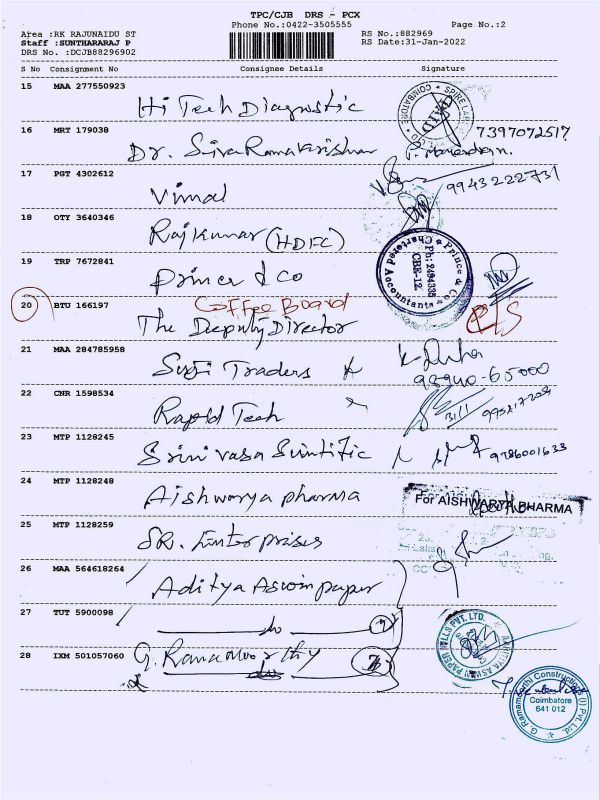 TPC/CJB DRS - PCX
Phone No.:0422-3505555
Page No.:2
Area :RK RAJUNAIDU ST
Staff :SUNTHARARAJ P
DRS No. :DCJB88296902
RS No.:882969
RS Date:31-Jan-2022
S No Consignment No Consignee Details Signature
15 MAA 277550923
Hi Tech Diagnostic
COIMBATORE
16 MRT 179038
7397072517
Dr. Siva Ramakrishnan
17 PGT 4302612
Vimal
9943222731
18 OTY 3640346
Rajkumar (HDFC)
19 TRP 7672841
Prince & Co
Prince & Co
Chartered Accountants
Ph: 2494335
CBE-12.
20 BTU 166197
Coffee Board
The Deputy Director
21 MAA 284785958
Suji Traders
98940-65000
22 CNR 1598534
Rapid Tech
31/1
23 MTP 1128245
Srinivasa Scintific
9786001633
24 MTP 1128248
Aishwarya pharma
For AISHWARYA PHARMA
25 MTP 1128259
SR. Enterprises
26 MAA 564618264
Aditya Aswin paper
27 TUT 5900098
28 IXM 501057060
G. Ramamoorthy
ADITHYA ASWIN PAPER MILLS PVT. LTD.
G. Ramamoorthi Constructions (I) Pvt. Ltd.
Coimbatore
641 012